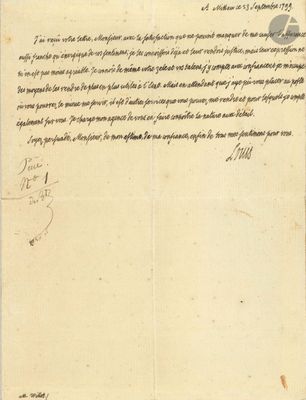 A Mittau ce 23 Septembre 1799.
J'ai reçu votre lettre, Monsieur, avec la satisfaction que ne peuvent manquer de me causer
aussi franche ou énergique de vos sentimens, je les connoissois déjà et leur rendois justice, mais leur expression ne
m'en est pas moins agréable. Je connois de même votre zèle et vos talens, j'y compte avec confiance et je m'occupe
des moyens de les rendre de plus en plus utiles à l'Etat. Mais en attendant que j'aye pu vous placer au poste
où vous pourrez, le mieux me servir, il est d'autres services que vous pouvez me rendre et pour lesquels je compte
également sur vous. Je charge mon agence de vous en faire connoître la nature et le détail.
Soyez persuadé, Monsieur, de mon estime, de ma confiance, enfin de tous mes sentimens pour vous.
Louis
Pièce
No 1
M. Willot